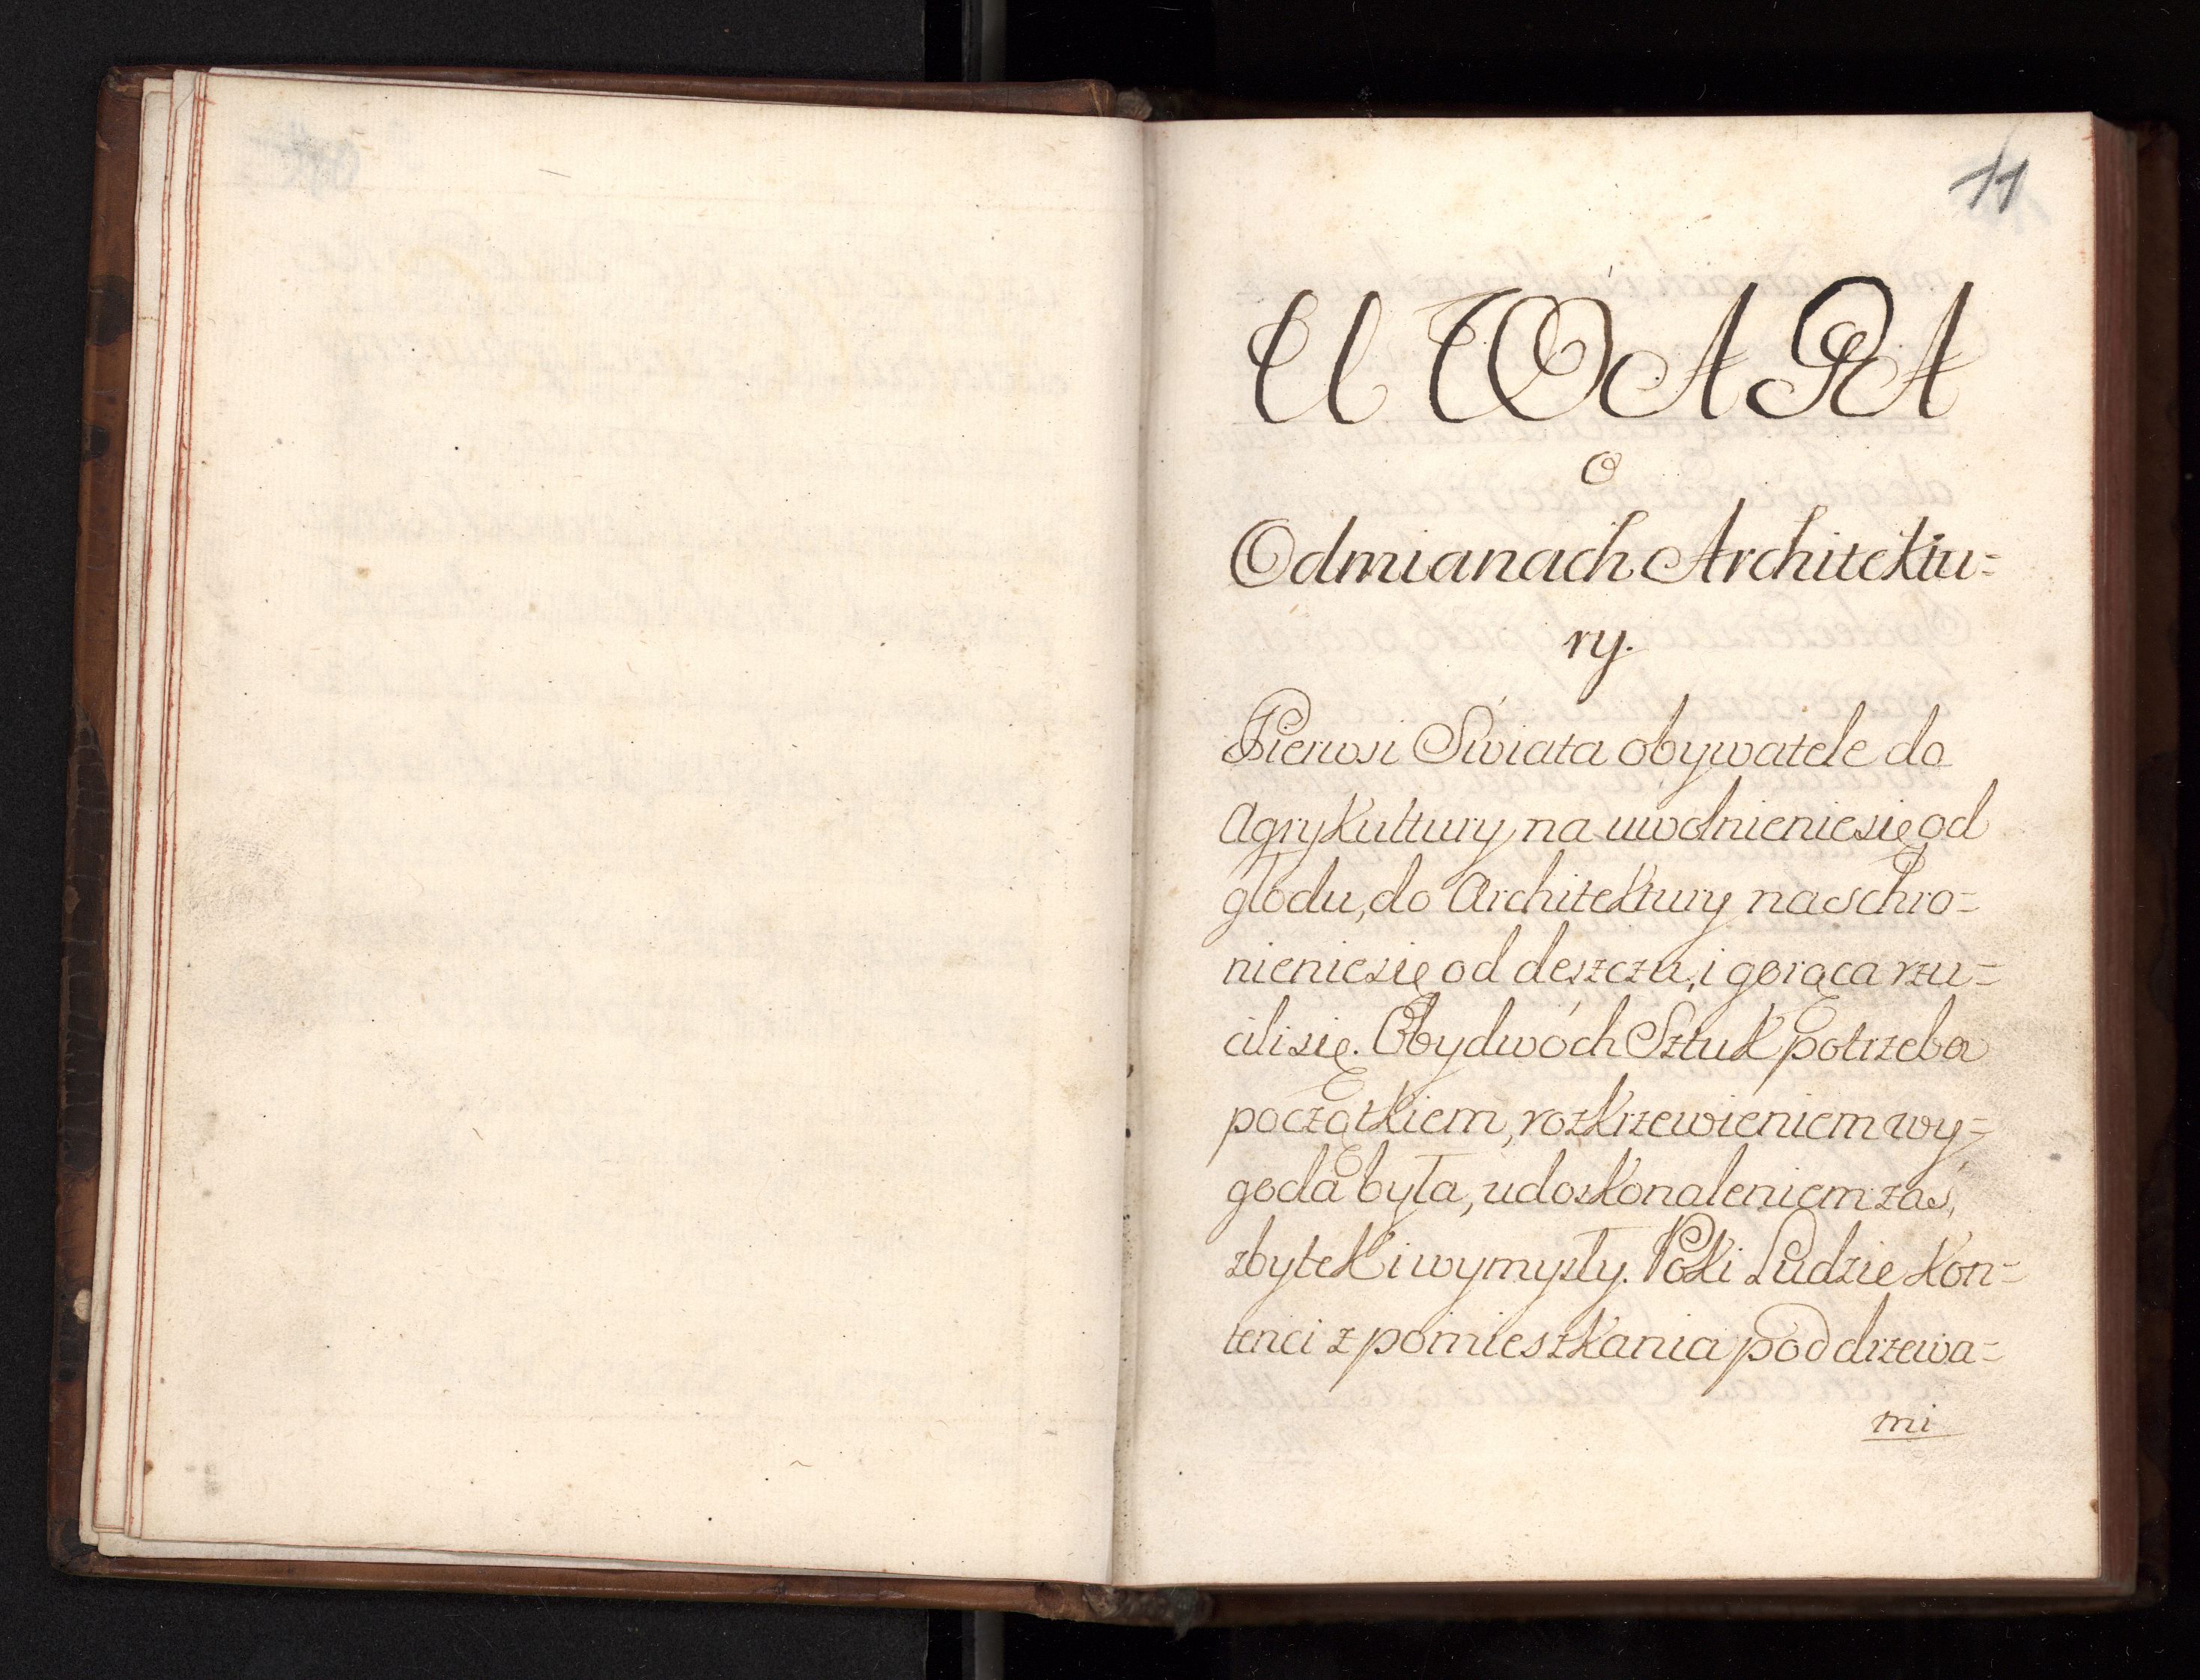 11
UWAGA
O
Odmianach Architektu=
ry.
Pierwsi Świata obywatele do
Agrykultury na uwolnienie się od
głodu, do Architektury na schro=
nienie się od deszczu, i gorąca rzu=
cili się. Obydwóch Sztuk potrzeba
początkiem, rozkrzewieniem wy=
goda była, udoskonaleniem zaś,
zbytek i wymysły. Poki Ludzie kon=
tenci z pomieszkania pod drzewa=
mi